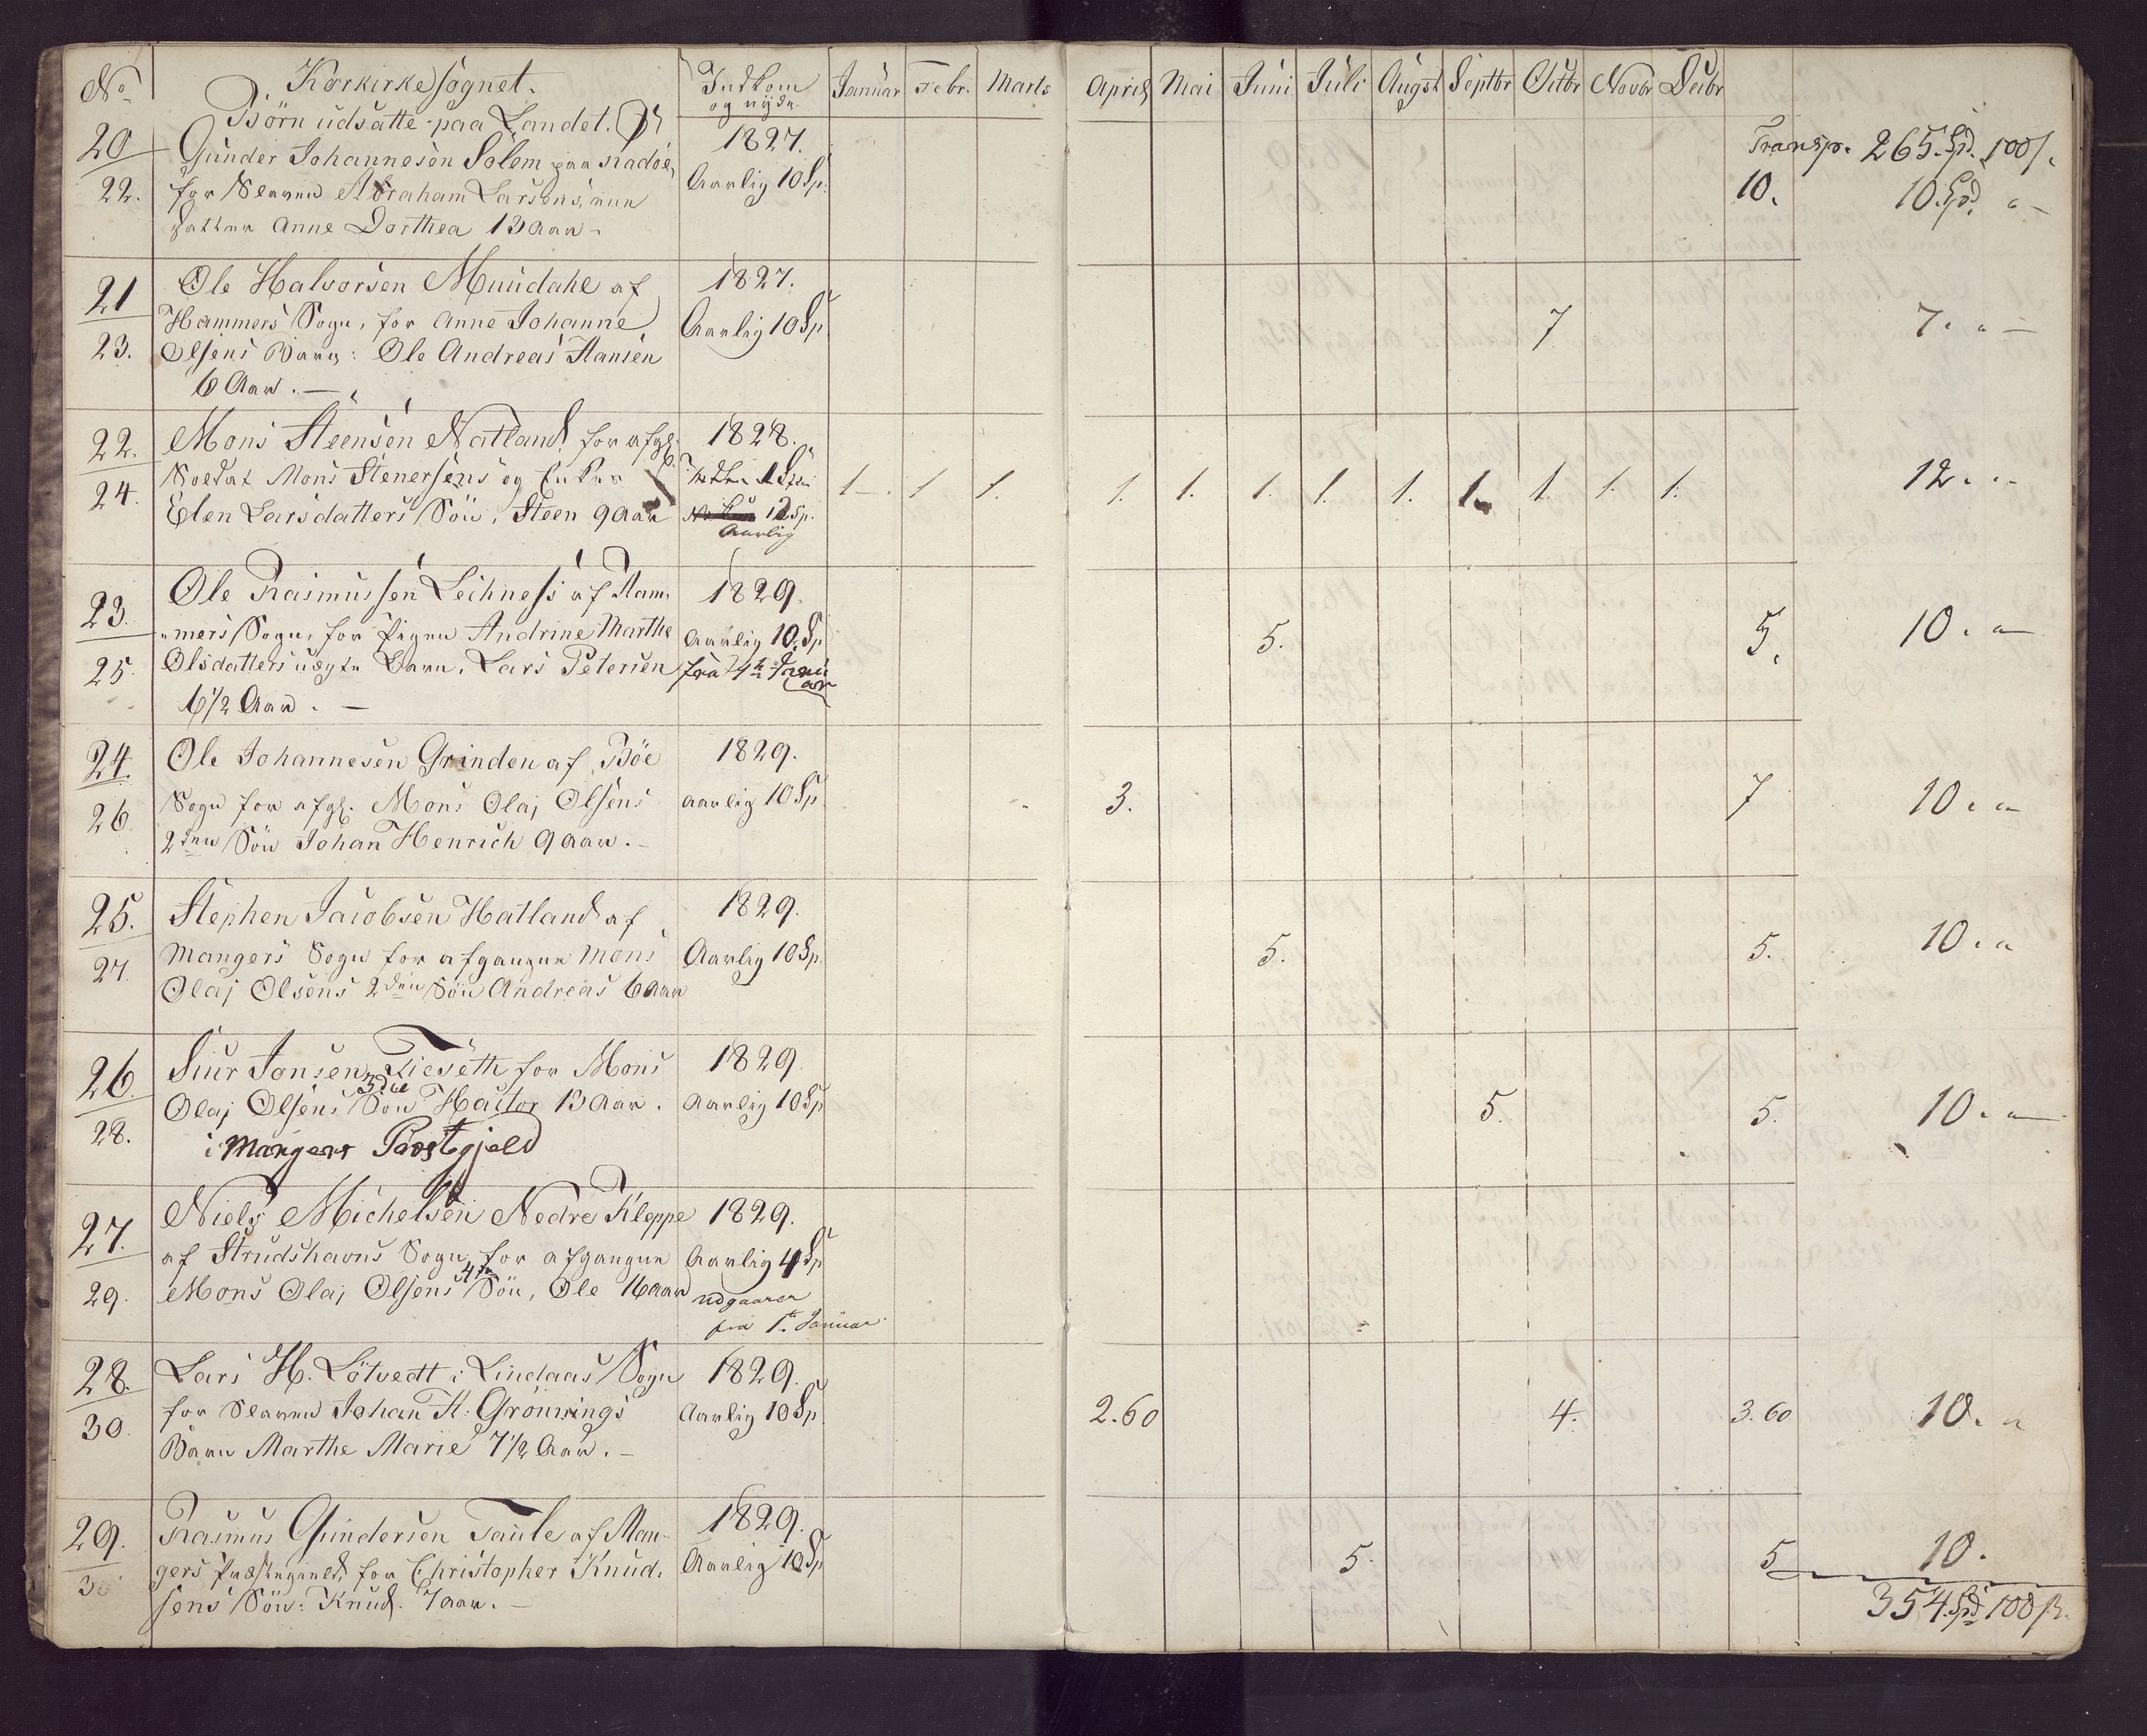 No Korkirkesognet. Indkom og nyder Januar Febr. Marts April Mai Juni Juli Augst Septbr Octbr Novbr Decbr
Börn udsatte paa Landet.
20 Gunder Johannesen Solem paa Radöe, 1827. Transp. 265 Spd. 100 s.
22. for Slaven Abraham Larsens Aarlig 10 Sp. 10. 10 Spd. "
Datter Anne Dorthea 13 Aar.
21 Ole Halvorsen Mundahl af 1827.
Hammers Sogn, for Anne Johanne Aarlig 10 Sp 7 7. "
23. Olsens Barn: Ole Andreas Hansen
6 Aar.
22. Mons Steensen Natland for afg. 1828.
24. Soldat Mons Stenersens og Enke 1 1 1. 1. 1. 1. 1. 1. 1. 1. 1. 1. 12. "
Elen Larsdatters Sön, Steen 9 Aar 12 Sp. Aarlig
23. Ole Rasmussen Leihness af Ham- 1829.
mers Sogn, for Pigen Andrine Marthe Aarlig 10 Sp 5. 5. 10. "
25. Olsdatters uægte Barn, Lars Petersen fra Januar
6 1/2 Aar.
24. Ole Johannesen Grinden af Böe 1829.
26. Sogn for afg. Mons Olaj Olsens aarlig 10 Sp 3. 7 10. "
2den Sön Johan Henrich 9 Aar.
25. Stephen Jacobsen Hatland af 1829.
27. Mangers Sogn for afgangne Mons Aarlig 10 Sp. 5. 5. 10. "
Olaj Olsens 2den Sön Andreas 6 Aar
26. Siur Jansen Tieseth for Mons 1829.
Olaj Olsens 3die Sön Hactor 13 Aar. Aarlig 10 Sp 5. 5. 10. "
28. i Mangers Præstgjeld
27. Niels Michelsen Nedre Kleppe 1829.
af Strudshavns Sogn, for afgangne Aarlig 4 Sp
29. Mons Olaj Olsens 4de Sön, Ole 16 Aar udgaaer
fra 1te Januar
28. Lars H. Lötvedt i Lindaas Sogn 1829.
30. for Slaven Johan H. Grönnings Aarlig 10 Sp 2.60 4. 3.60 10. "
Barn Marthe Marie 7 1/2 Aar.
29. Rasmus Gundersen Taule af Man- 1829.
gers Præstegield, for Christopher Knud- Aarlig 10 Sp 5. 5 10.
sens Sön: Knud. 7 Aar. 354 Spd 100 s.